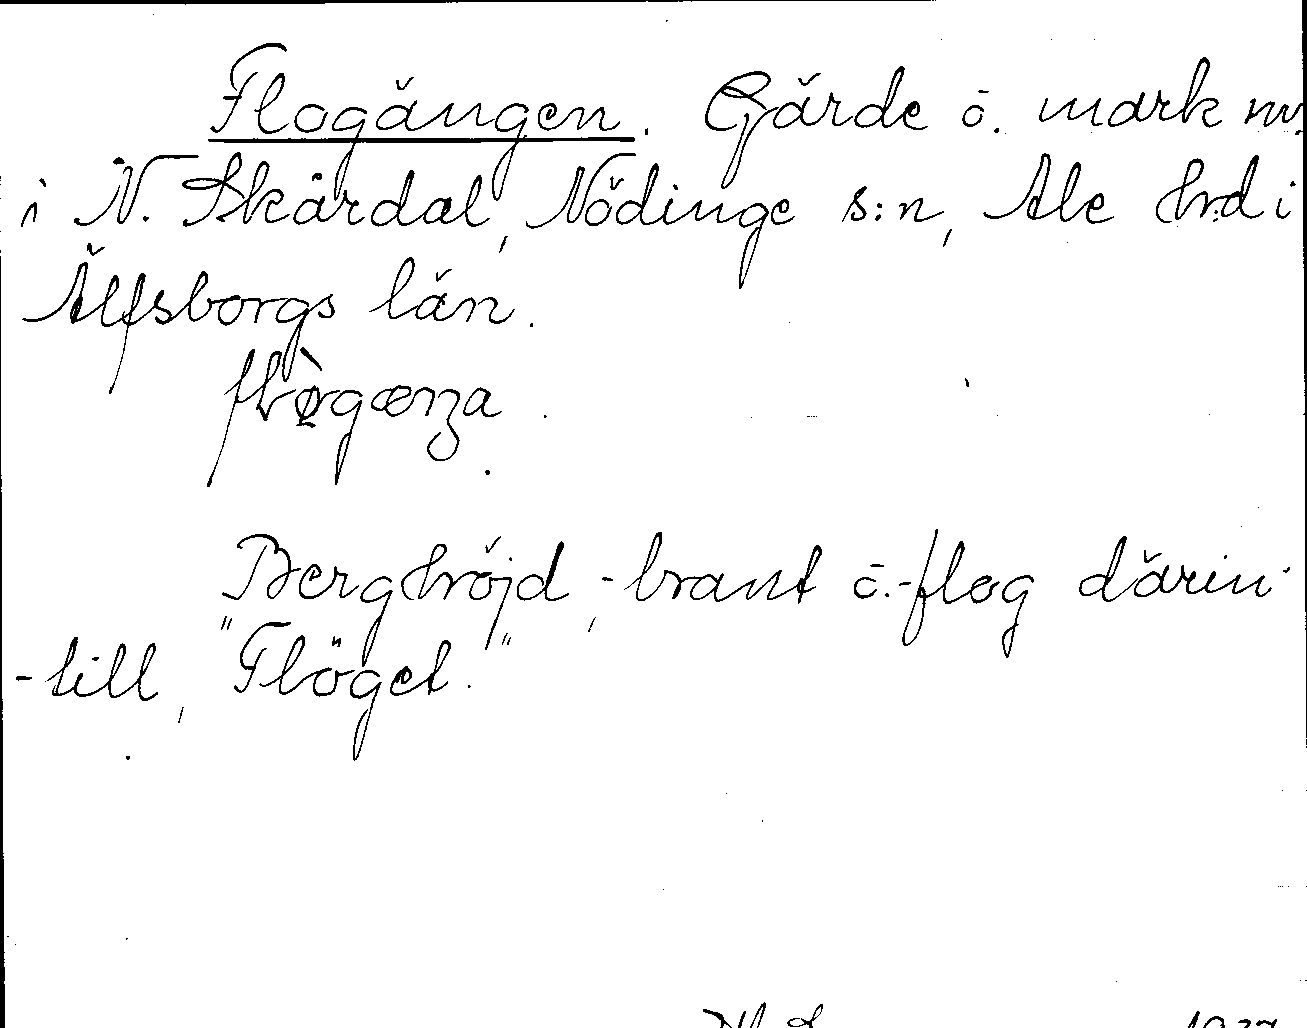 Flogängen. Gärde o. mark nv.
i N. Skårdal, Nödinge s:n, Ale h:d i
Älfsborgs län.
Berghöjd, -brant o.-flog därin-
-till, "Flöget."